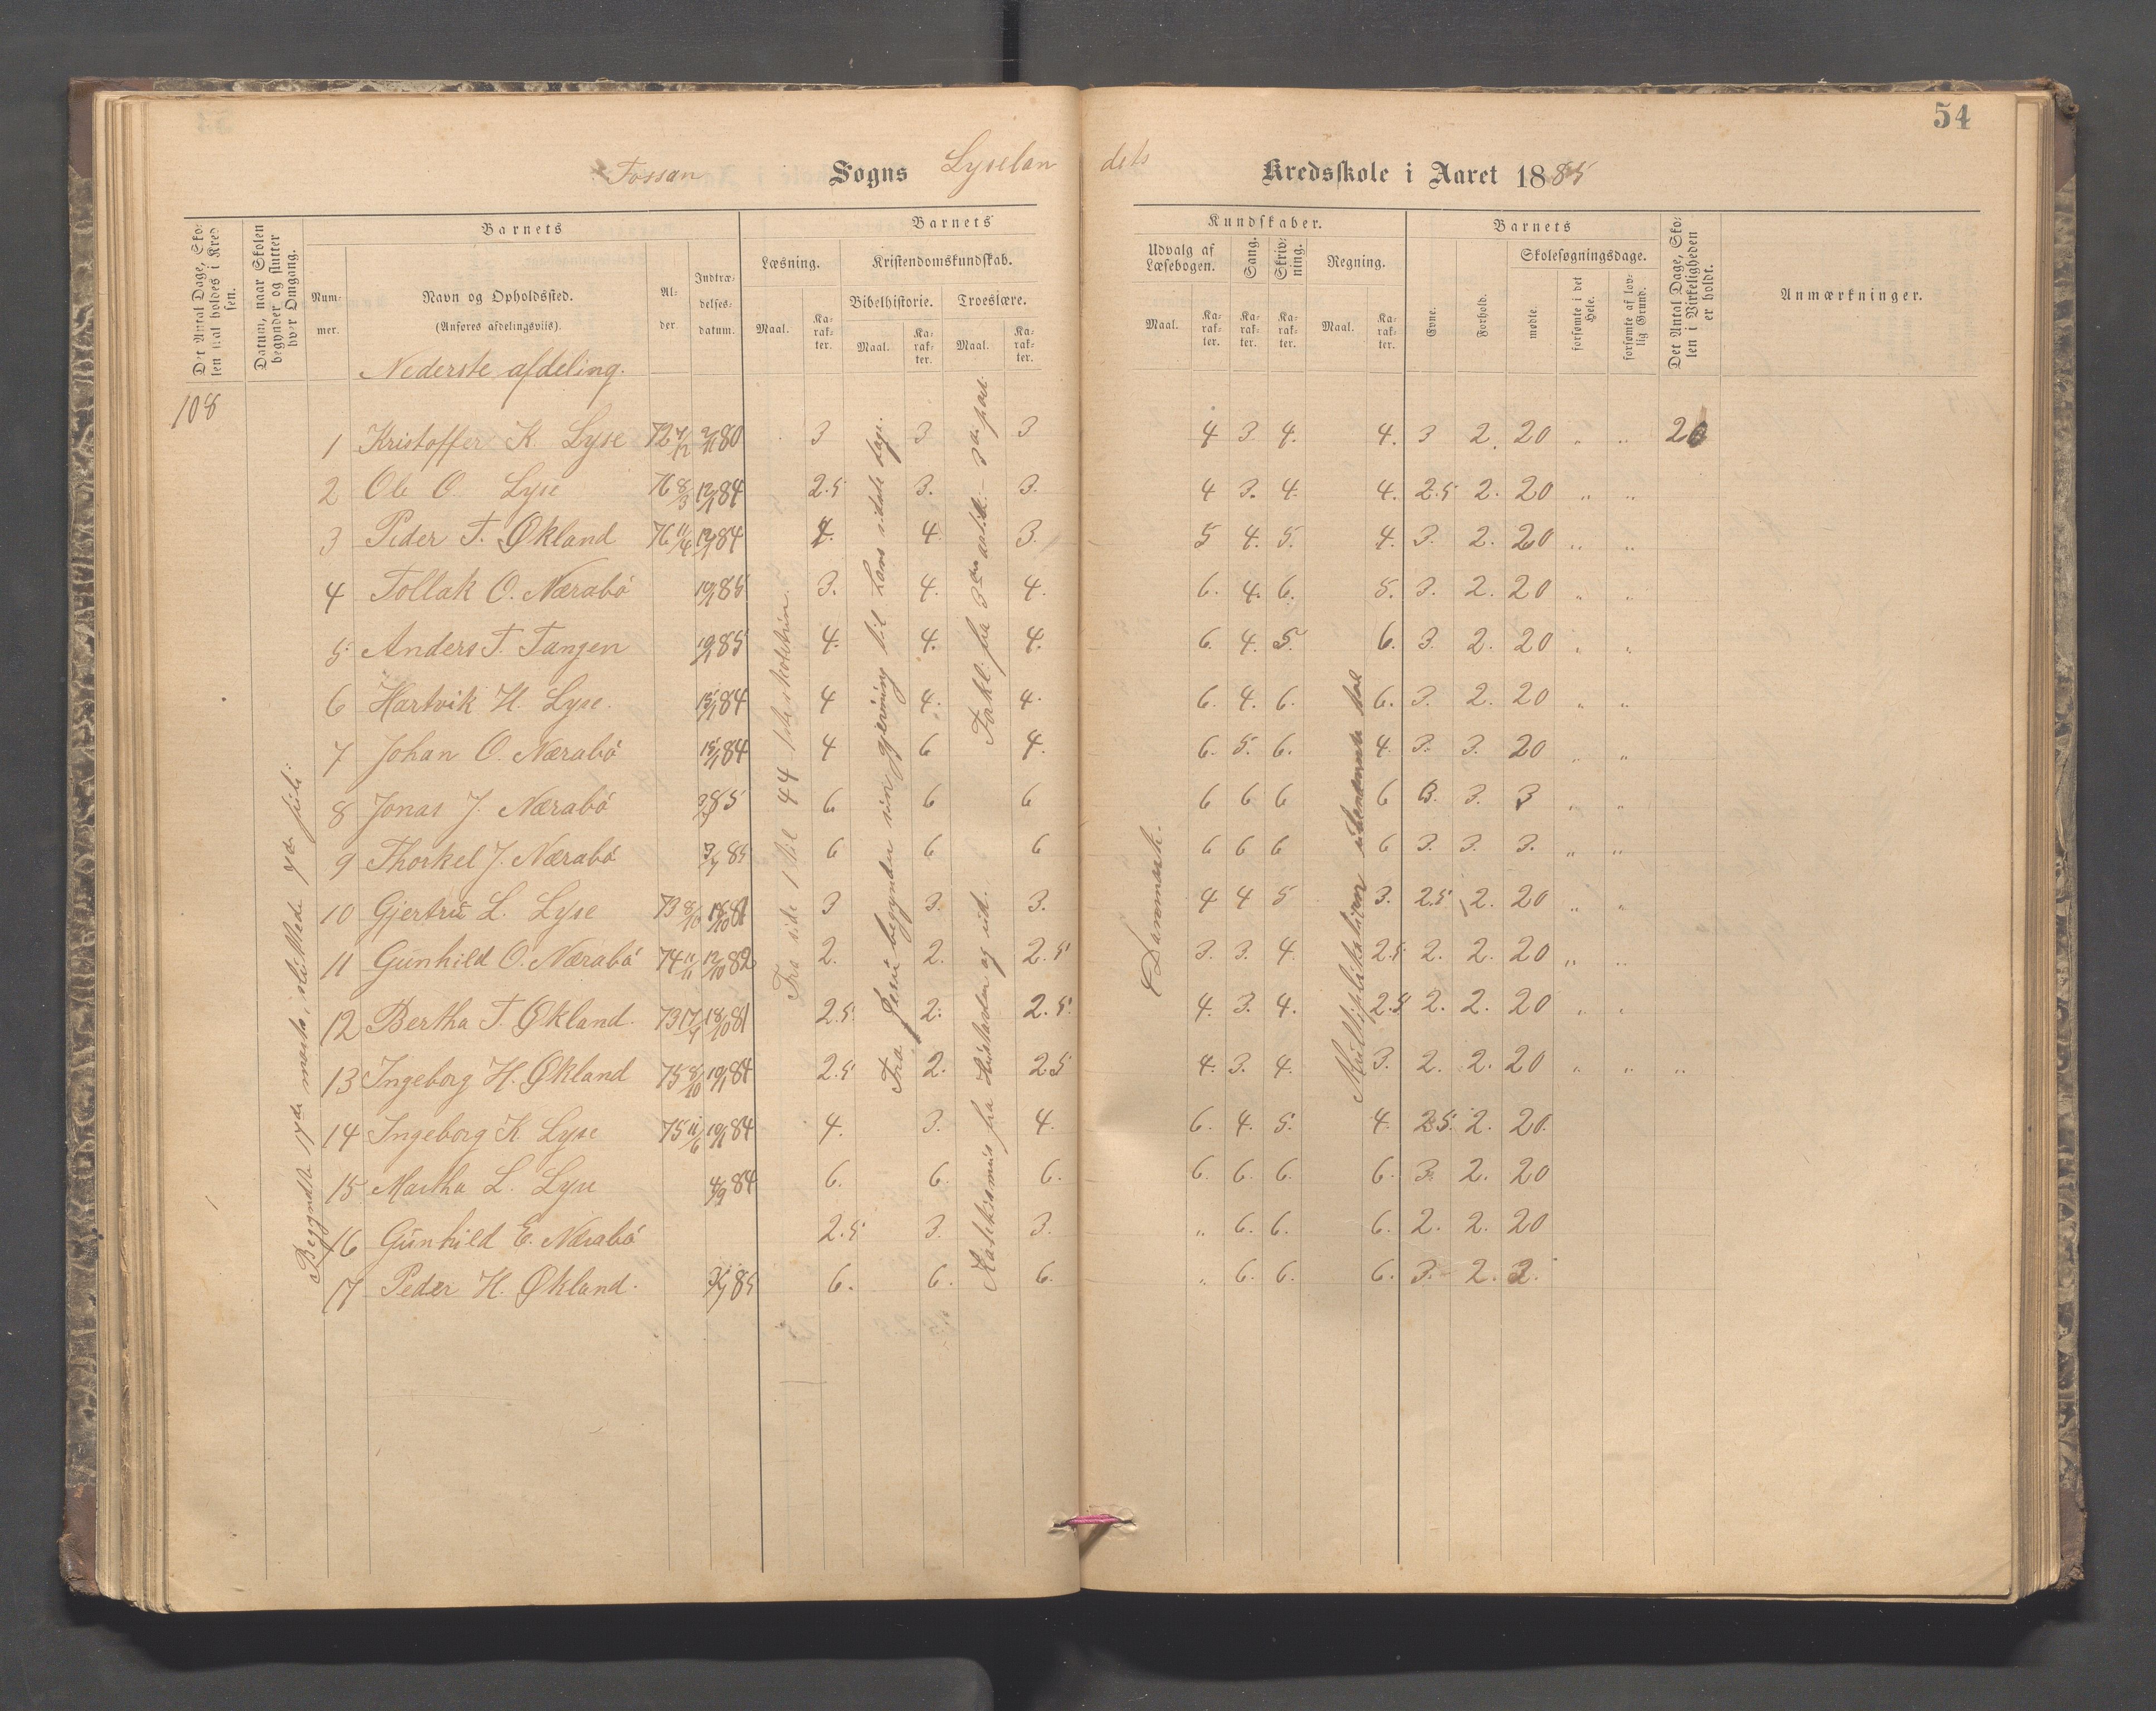 54
Fossan Sogns Lyselandets Kredsskole i Aaret 1885
Det Antal Dage, Skolen skal holdes i Kredsen.
Datum, naar Skolen begynder og slutter hver Omgang.
Barnets
Nummer.
Navn og Opholdssted.
(Anføres afdelingsviis).
Alder
Indtrædelsesdatum.
Barnets Kundskaber.
Læsning.
Maal.
Karakter.
Kristendomskundskab.
Bibelhistorie.
Maal.
Karakter.
Troeslære.
Maal.
Karakter.
Udvalg af Læsebogen.
Maal.
Karakter.
Sang.
Karakter.
Skrivning.
Karakter.
Regning.
Maal.
Karakter.
Barnets
Evne.
Forhold.
Skolesøgningsdage.
mødte.
forsømte i det Hele.
forsømte af lovlig Grund.
Det Antal Dage, Skolen i Virkeligheden er holdt.
Anmærkninger.
Nederste afdeling.
108
1 Kristoffer K. Lyse 72 80 3 3 3 4 3 4. 4. 3 2. 20 " " 20
2 Ole O. Lyse 76 8/3 12/1 84 2.5 3. 3. 4 3. 4. 4. 2.5 2. 20 " "
3 Peder T. Økland 76 11/4 84 4. 4. 3. 5 4. 5. 4. 3. 2. 20 " "
4 Tollak O. Nærabö 85 3. 4. 4. 6. 4. 6. 5. 3. 2. 20 " "
5. Anders T. Tangen 85 4. 4. 4. 6. 4. 5. 6. 3. 2. 20 " "
6 Hartvik H. Lyse. 84 4 4. 4. 6. 4. 6. 6. 3. 2. 20 " "
7 Johan O. Nærabö 84 4 6 4. 6. 5. 6. 4. 3. 3. 20 " "
8 Jonas J. Nærabö 85 6 6 6 6 6 6 6 3. 3. 3 " "
9 Thorkel J. Nærabö 85 6 6 6 6 6 6 6 3. 3. 3. " "
10 Gjertru L. Lyse 73 8/10 81 3 3. 3. 4 4 5 3. 2.5 2. 20 " "
11 Gunhild O. Nærabö 74 11/11 12/10 82 2. 2. 2.5 3. 3. 4. 2.5 2. 2. 20 " "
12 Bertha T. Økland. 73 18/10 81 2.5 2. 2.5 4. 3. 4. 2.5 2. 2. 20 " "
13 Ingeborg H. Økland 75 8/10 84 2.5 2. 2.5 4. 3. 4. 3. 2. 2. 20 " " "
14 Ingeborg K. Lyse 75 11/6 84 4. 3. 4. 6. 4. 5. 4. 2.5. 2. 20.
15 Martha L. Lyse 4/9 84 6. 6. 6. 6. 6. 6. 6. 3. 2. 20
16 Gunhild E. Nærabö 2.5 3. 3. " 6. 6. 6. 2. 2. 20
17 Peder H. Økland. 85 6. 6. 6. " 6. 6. 6. 3. 2. 2.
Begyndte 17de marts, sluttede 7de juli.
Fra side 1 til 44 1ste skoletrin.
Fra Jesu begynder sin gjerning til Hans sidste dage.
Katekismus fra Hustavlen og ud. Forkl. fra 3die artik. – 3die part.
Danmark.
Multiplikation ubenævnte tal